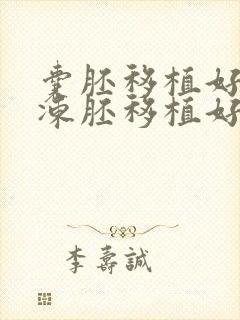 囊胚移植好
凍胚移植好
李壽誠